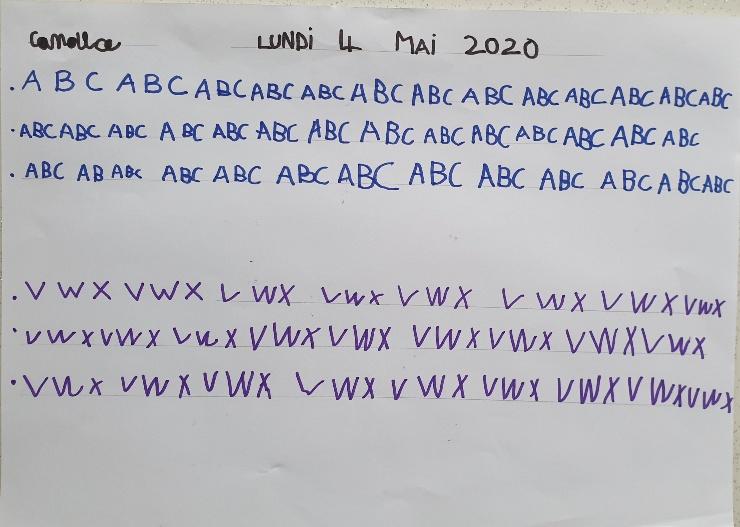 Camellia LUNDi 4 MAi 2020
. A B C A B C A B C ABC ABC A BC ABC A BC ABC ABC ABC ABC ABC
. ABC ABC ABC A BC ABC ABC ABC A BC ABC ABC ABC ABC ABC ABC
. ABC AB ABC ABC ABC ABC ABC ABC ABC ABC ABC A BC ABC
. V W X V W X V WX Vwx V W X V W X V W X Vwx
. VWX VWX VWX VWX VWX VWX VWX VWX VWX
. VWX VWX VWX VWX V W X VWX VWX V WX VWX